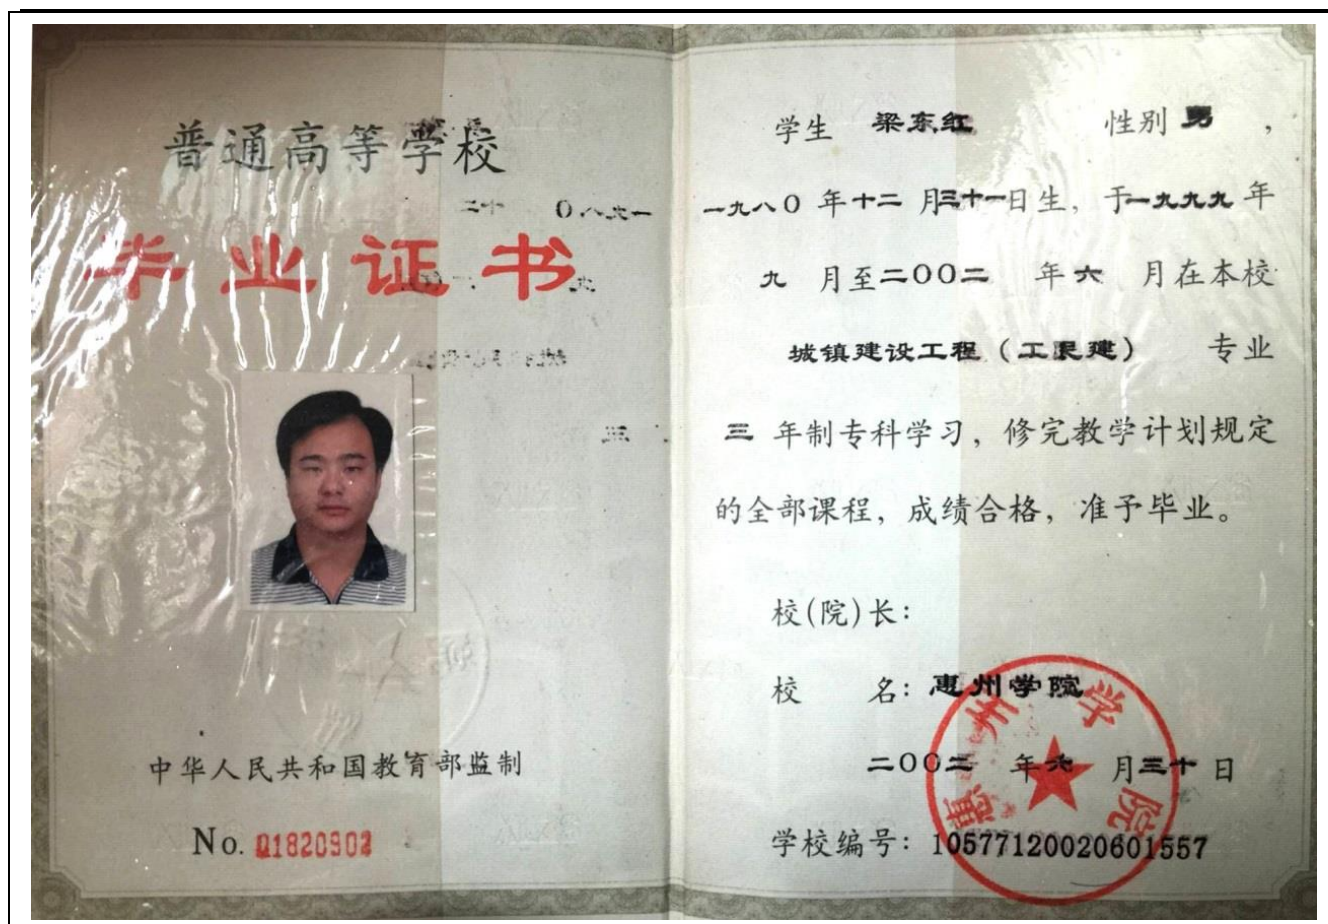 普通高等学校
毕业证书
中华人民共和国教育部监制
No. 01820902
学生 梁东红 性别 男 ,
一九八0 年十二 月三十一日生, 于一九九九 年
九 月至二00二 年 六 月在本校
城镇建设工程 (工民建) 专业
三 年制专科学习, 修完教学计划规定
的全部课程, 成绩合格, 准予毕业。
校(院)长:
校 名: 惠州学院
惠州学院
二00二 年 六 月三十 日
学校编号: 10577120020601557